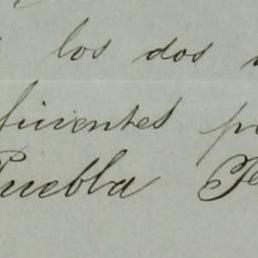 los dos
ficientes p
Puebla